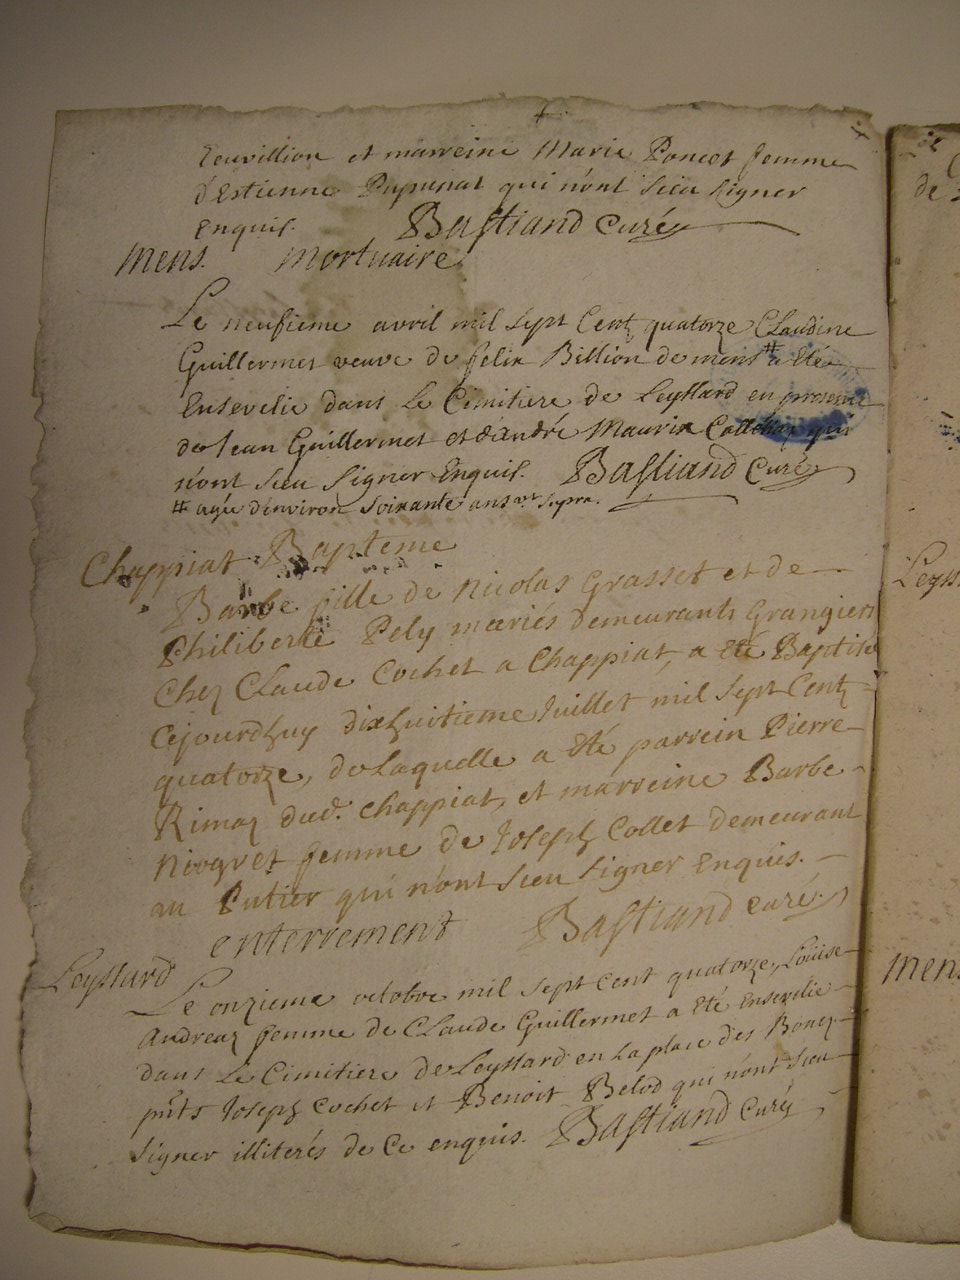 et marreine Marie Poncet femme
d'Estienne Pupunat qui n'ont sceu signer
enquis. Bastiand Curé
Mens. Mortuaire
Le neufieme avril mil sept Cent quatorze Claudine
Guillermet veuve de felix Billion de mens # a Eté
Ensevelie dans Le Cimitiere de Leyssard en presence
de Jean Guillermet et d'andré Maurin qui
n'ont sceu signer Enquis. Bastiand Curé
# agée d'environ soixante ans vt supra.
Chappiat Bapteme
Barbe fille de Nicolas Grasset et de
Philiberte Pely mariés demeurants Grangiers
Chez Claude Cochet a Chappiat, a Eté Baptisée
Cejourdhuy dixhuitieme Juillet mil sept Centz
quatorze, de Laquelle a Eté parrein Pierre
Rimaz dud. Chappiat, et marreine Barbe
Niogret femme de Joseph Collet demeurant
au Putier qui n'ont sceu signer Enquis.
enterrement Bastiand curé
Leyssard
Le onzieme octobre mil sept Cent quatorze, Louise
Andreaz femme de Claude Guillermet a Eté Ensevelie
dans Le Cimitiere de Leyssard en La place des Bonez
pnts Joseph Cochet et Benoit Belod qui n'ont sceu
signer illiterés de Ce enquis. Bastiand Curé
de
Leyss
mens